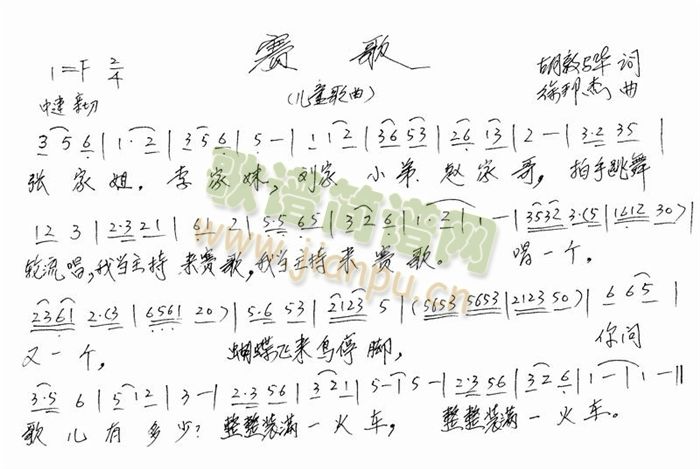 赛歌
(儿童歌曲)
1=F 2/4
中速 亲切
胡敦骅 词
徐邦杰 曲
3 5 6 | 1·2 | 3 5 6 | 5 - | 1 1 2 | 36 53 | 26 13 | 2 - | 3·2 35 |
张家姐，李家妹，刘家小弟，赵家哥，拍手跳舞
12 3 | 2·3 21 | 6· 2 | 5·5 65 | 3 2 6 | 1·2 | 1 - | 3532 3·(5 | 1612 30) |
轮流唱，我当主持来赛歌，我当主持来赛歌。唱一个，
2361 2·(3 | 6561 20) | 5·6 53 | 2123 5 | (5653 5653 | 2123 50) | 6 65 |
又一个，蝴蝶飞来鸟停脚，你问
3·5 6 | 5 12 | 3 - | 2·3 56 | 3 21 | 5 - | 5 - | 2·3 56 | 3 2 6 | 1 - | 1 - ||
歌儿有多少？整整装满一火车，整整装满一火车。
歌谱简谱网
www.jianpu.cn